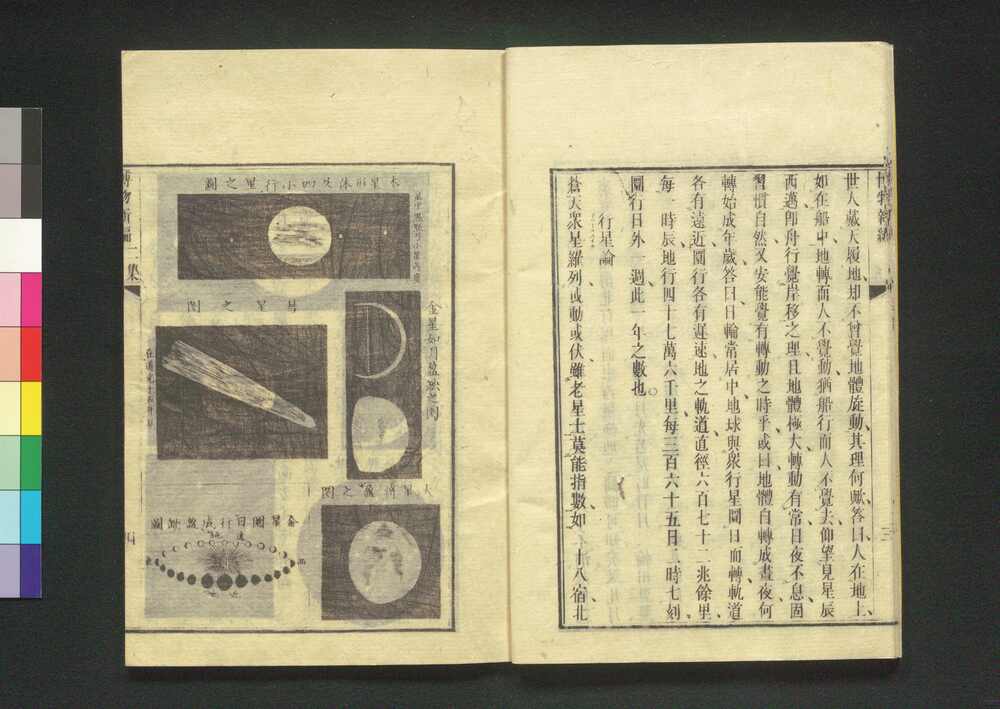 世人戴天履地却不曾覺地體旋動其理何歟答曰人在地上
如在船中地轉而人不覺動猶船行而人不覺去仰望見星辰
西邁即舟行覺岸移之理且地體極大轉動有常日夜不息固
習慣自然又安能覺有轉動之時乎或曰地體自轉成晝夜何
轉始成年歲答曰日輪常居中地球與眾行星圜日而轉軌道
各有遠近圜行各有遲速地之軌道直徑六百七十二兆餘里
每一時辰地行四十七萬六千里每三百六十五日二時七刻
圜行日外一週此一年之數也。
行星論
蒼天眾星羅列或動或伏雖老星士莫能指數如二十八宿北
木星形體及四小行星之圖
彗星之圖
金星如月盈缺之圖
火星得氣之圖
金星圜日行成盈缺圖
博物新編二集